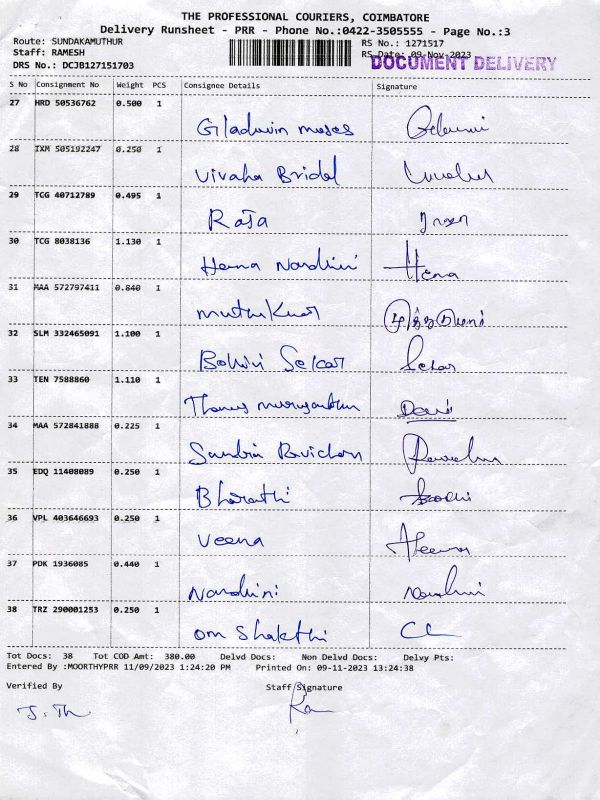 THE PROFESSIONAL COURIERS, COIMBATORE
Delivery Runsheet - PRR - Phone No.:0422-3505555 - Page No.:3
Route: SUNDAKAMUTHUR RS No.: 1271517
Staff: RAMESH RS Date: 09-Nov-2023
DRS No.: DCJB127151703 DOCUMENT DELIVERY
S No Consignment No Weight PCS Consignee Details Signature
27 HRD 50536762 0.500 1
Gladwin moses
28 IXM 505192247 0.250 1
Vivaha Bridal
29 TCG 40712789 0.495 1
Raja
30 TCG 8038136 1.130 1
Hema Nandhini Hema
31 MAA 572797411 0.840 1
muthu Kumar
32 SLM 332465091 1.100 1
Sekar Sekar
33 TEN 7588860 1.110 1
34 MAA 572841888 0.225 1
35 EDQ 11408089 0.250 1
Bharathi
36 VPL 403646693 0.250 1
Veena
37 PDK 1936085 0.440 1
Nandhini Nandhini
38 TRZ 290001253 0.250 1
om Shakthi
Tot Docs: 38 Tot COD Amt: 380.00 Delvd Docs: Non Delvd Docs: Delvy Pts:
Entered By :MOORTHYPRR 11/09/2023 1:24:20 PM Printed On: 09-11-2023 13:24:38
Verified By Staff Signature